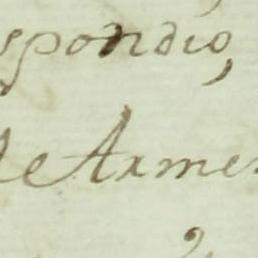 spondio,
de Arme